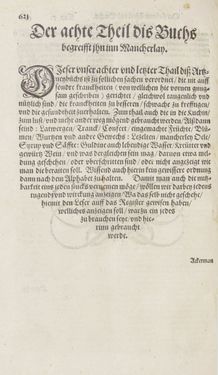 621
Der achte Theil dis Buchs
begreifft jhn inn Mancherlay.
Dieser vnser achter vnd letzter Thail diß Artz-
neybůchs ist zu sollichen sachen verordnet, die nit auff
sondere kranckheiten, von wellichen hie vornen gnug-
sam geschriben, gerichtet, gleichwol taugenlich vnd
nützlich sind, die kranckheiten zu
vnd die gesundheit zuerhalten. Zum thail auch die in die Kuchin,
zum lust, vnd mehr ander wegen gebraucht werden. Alß dann
seind, Latwergen, Tranck, Confect, eingemachte Früchte, Blů-
men, Wurtzen vnd andre Gewechs, Zeltlen, mancherley Oele,
Syrup vnd Säffte, Guldine auch lebendige Wasser, Kreütter vnd
gewürtz Wein, vnd was dergleichen mehr sein mag, daruon etwa mel-
dung geschehen, oder
die beraiten soll. Wissend auch hierin fein gewonliche ordnung
dann nach dem Alphabet zuhalten. Damit man auch die nutz-
barkeit eins jeden möge, wöllen wir darbey jedes
tugend vnd würckung anzeigen. Wa das selb nicht geschehe,
hiemit den Leser auff das Register gewisen haben,
welliches anzeigen soll, warzu ein jedes
zu brauchen seye, vnd hie-
rinn gebraucht
werde.
Ackerman